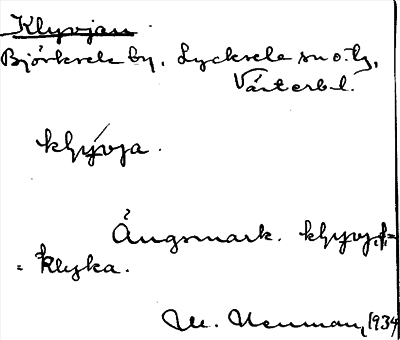 Klyvjan
Björksele by, Lycksele sn o. tg,
Västerb. l.
klyvja.
Ängsmark. klyvj,f,=
= klyka.
M. Neuman, 1934